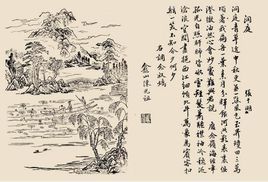 洞庭
張于湖
洞庭青草近中秋更無一點風色玉界瓊田三萬
頃著我扁舟一葉素月分輝明河共影表裏俱
澄澈油然心會妙處難與君說 應念嶺海經年
孤光自照肝膽皆冰雪短髮蕭疎襟袖冷穩泛
滄溟空闊盡吸西江細斟北斗萬象為賓客扣
舷一笑不知今夕何夕
右調念奴嬌
山陳元